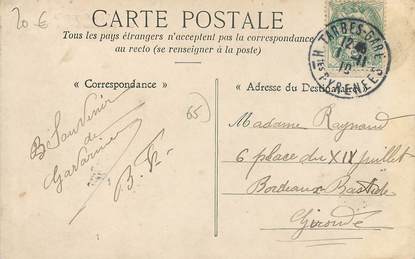 20 €
CARTE POSTALE
Tous les pays étrangers n'acceptent pas la correspondance
au recto (se renseigner à la poste)
TARBES-GARE
Hᵗᵉˢ PYRENEES
« Correspondance »
« Adresse du Destinataire »
65
Bⁿ Souvenir
de
Gavarnie
Madame Raynaud
6 place du XIV juillet
Bordeaux-Bastide
Gironde